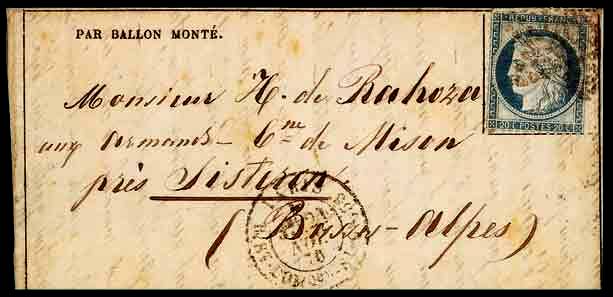 PAR BALLON MONTÉ.
REPUB FRANC
Monsieur H. de Rahoza
aux Armands - Cne de Mison
près Sisteron
(Basses-Alpes)
20 C POSTES 20 C